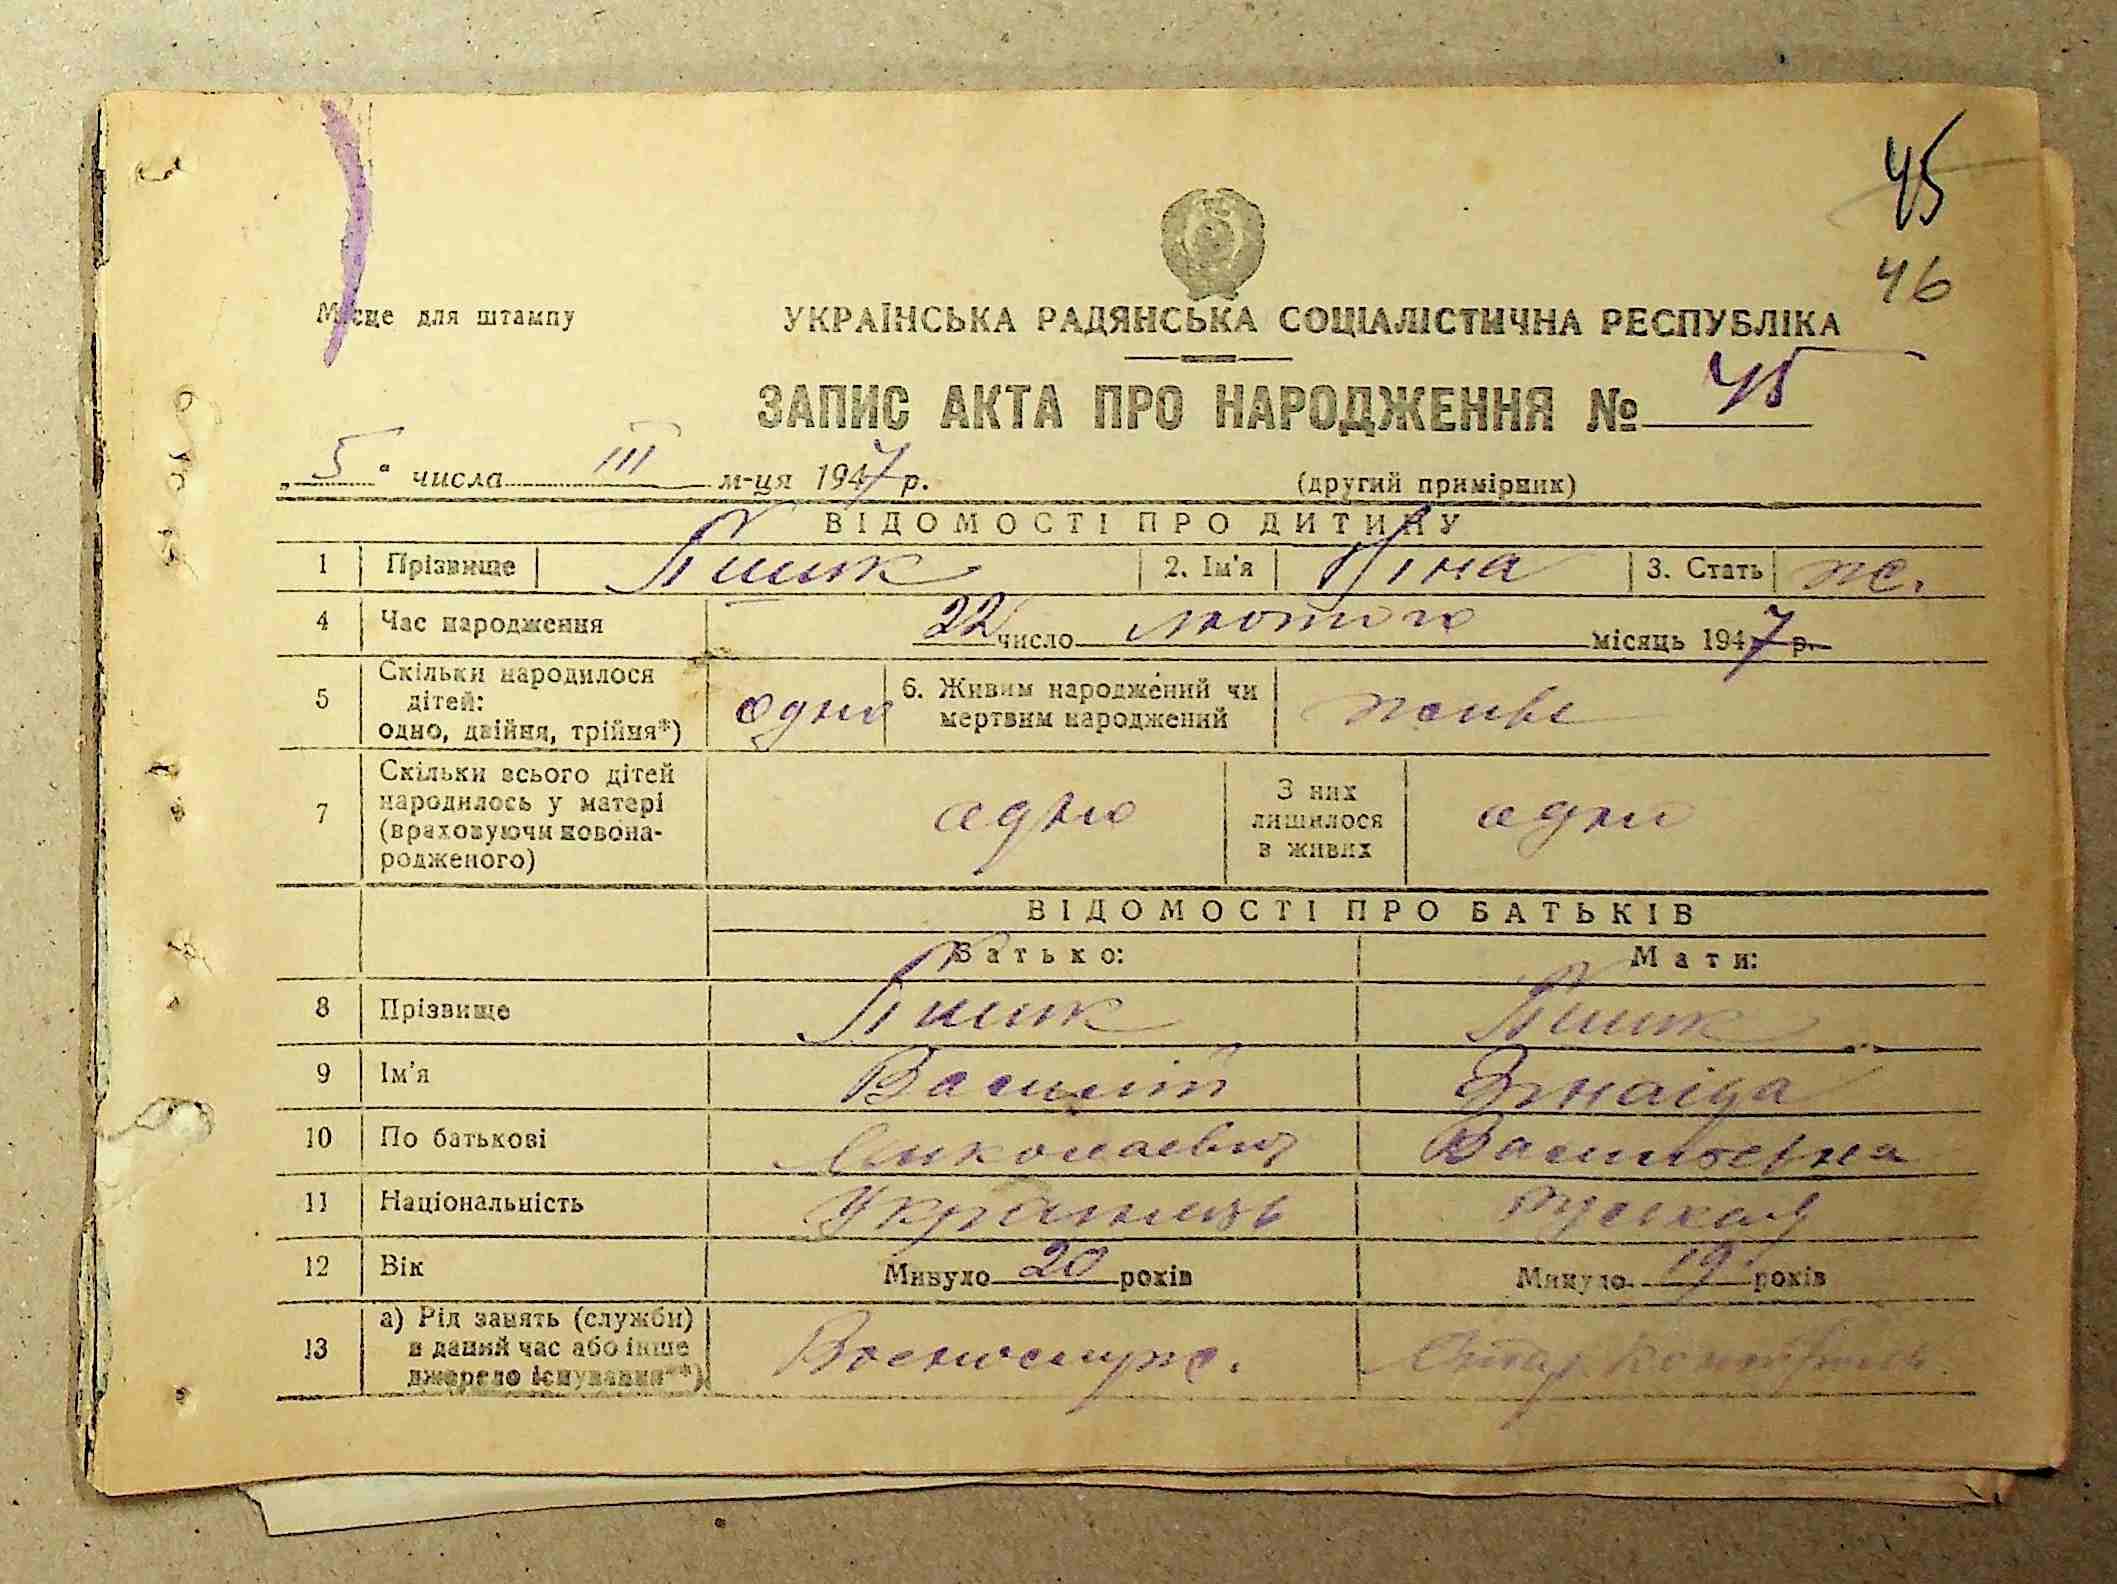 45
46
Місце для штампу
УКРАЇНСЬКА РАДЯНСЬКА СОЦІАЛІСТИЧНА РЕСПУБЛІКА
ЗАПИС АКТА ПРО НАРОДЖЕННЯ № 45
„5“ числа III м-ця 1947 р. (другий примірник)
ВІДОМОСТІ ПРО ДИТИНУ
1 Прізвище 2. Ім'я Ніна 3. Стать ж.
4 Час народження 22 число лютого місяць 1947 р.
5 Скільки народилося дітей: одно, двійня, трійня*) одно 6. Живим народжений чи мертвим народжений живе
7 Скільки всього дітей народилось у матері (враховуючи новонародженого) одно З них лишилося в живих одно
ВІДОМОСТІ ПРО БАТЬКІВ
Батько: Мати:
8 Прізвище
9 Ім'я Василій Зінаіда
10 По батькові Николаевич Василівна
11 Національність Українець руская
12 Вік Минуло 20 років Минуло 19 років
13 а) Рід занять (служби) в даний час або інше джерело існування**) Воєнослуж.